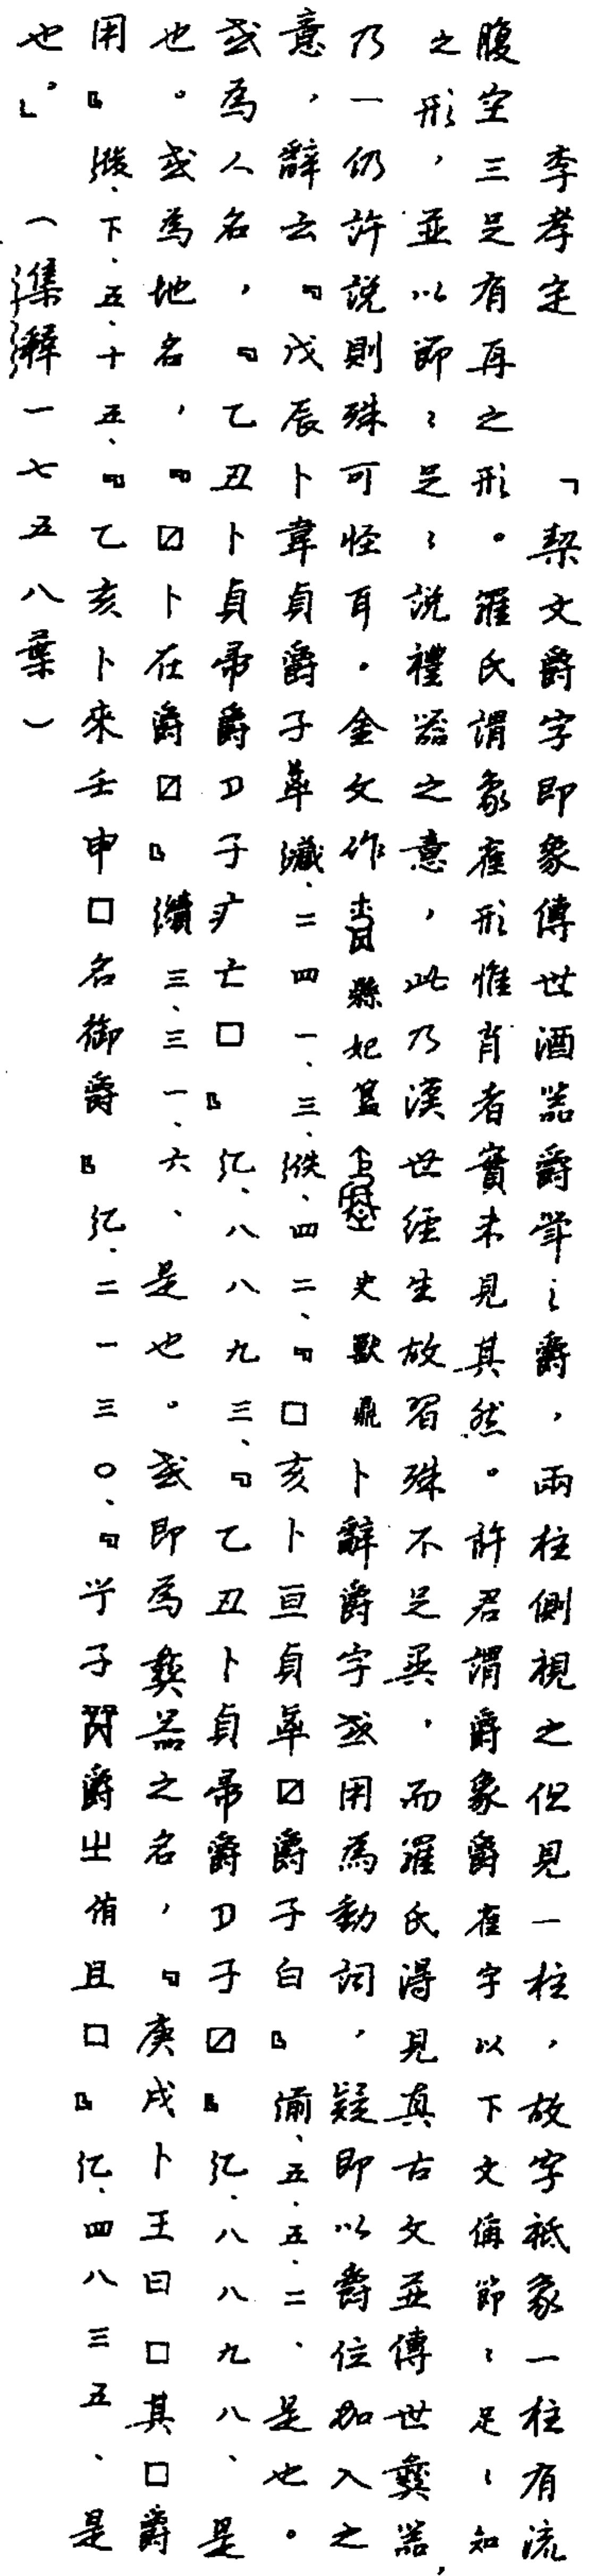 李孝定　「契文爵字即象傳世酒器爵斝之爵，兩柱側視之但見一柱，故字祇象一柱有流
腹空三足有耳之形。羅氏謂象雀形惟肖者實未見其然。許君謂爵象爵雀字以下文偁節〻足〻知
之形，並以節〻足〻說禮器之意，此乃漢世經生故習殊不足異，而羅氏得見真古文並傳世彝器，
乃一仍許說則殊可怪耳。金文作縣妃簋史獸鼎卜辭爵字或用為動詞，疑即以爵位加入之
意，辭云『戊辰卜韋貞爵子𠦪』藏、二四一、三、佚、四二、『□亥卜亘貞𠦪☑爵子白』前、五、五、二、是也。
或為人名，『乙丑卜貞帚爵㞢子疒亡□』乙、八八九三、『乙丑卜貞帚爵㞢子☑』乙、八八九八、是
也。或為地名，『☑卜在爵☑』續三、三一、六、是也。或即為彝器之名，『庚戌卜王曰□其□爵
用』後、下、五、十五、『乙亥卜來壬申□名御爵』乙、二一三〇、『子爵㞢侑且□』乙、四八三五、是
也。」（集釋一七五八葉）